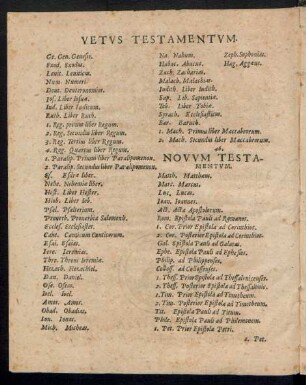 VETVS TESTAMENTVM.
Ge. Gen. Genesis.
Exod. Exodus.
Levit. Leviticus.
Num. Numeri.
Deut. Deuteronomium.
Jos. Liber Iosuæ.
Iud. Liber Iudicum.
Ruth. Liber Ruth.
1. Reg. primus liber Regum.
2. Reg. Secundus liber Regum.
3. Reg. Tertius liber Regum.
4. Reg. Quartus liber Regum.
1. Paralip. Primus liber Paralipomenon.
2. Paralip. Secundus liber Paralipomenon.
Es. Esdræ liber.
Nehe. Nehemiæ liber.
Hest. Liber Hester.
Hiob. Liber Iob.
Psal. Psalterium.
Proverb. Proverbia Salomonis.
Eccles. Ecclesiastes.
Cant. Canticum Canticorum.
Esai. Esaias.
Iere. Ieremias.
Thre. Threni Ieremiæ.
Hezech. Hezechiel.
Dan. Daniel.
Ose. Oseas.
Ioel. Ioel.
Amos. Amos.
Obad. Obadias.
Ion. Ionas.
Mich. Micheas.
Na. Nahum.
Habac. Abacuc.
Zach. Zacharias.
Malach. Malachias.
Iudith. Liber Iudith.
Sap. Lib. Sapientiæ.
Tob. Liber Tobiæ.
Syrach. Ecclesiasticus.
Bar. Baruch.
1. Mach. Primus liber Maccabæorum.
2. Mach. Secundus liber Maccabæorum.
Zeph. Sephonias.
Hag. Aggæus.
NOVUM TESTA-
MENTUM.
Matth. Matthæus.
Marc. Marcus.
Luc. Lucas.
Ioan. Ioannes.
Act. Acta Apostolorum.
Rom. Epistola Pauli ad Romanos.
1. Cor. Prior Epistola ad Corinthios.
2. Cor. Posterior Epistola ad Corinthios.
Gal. Epistola Pauli ad Galatas.
Ephe. Epistola Pauli ad Ephesios.
Philip. ad Philippenses.
Coloss. ad Collossenses.
1. Thess. Prior Epistola ad Thessalonicenses.
2. Thess. Posterior Epistola ad Thessalonic.
1. Tim. Prior Epistola ad Timotheum.
2. Tim. Posterior Epistola ad Timotheum.
Tit. Epistola Pauli ad Titum.
Phile. Epistola Pauli ad Philemonem.
1. Pet. Prior Epistola Petri.
2. Pet.